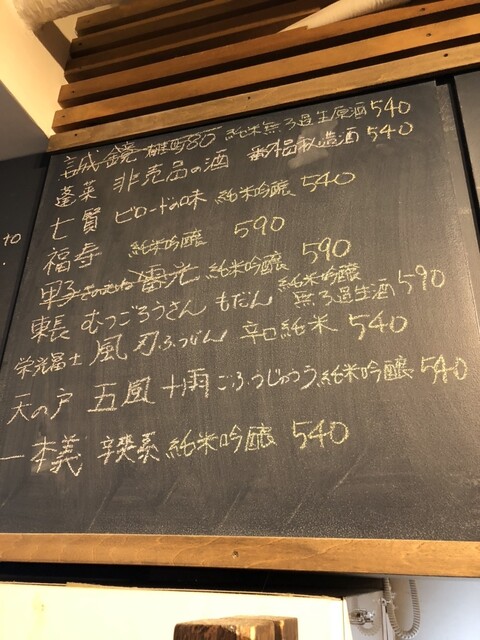 岩城 鏡 雄町80 純米無ろ過生原酒 540
蓬莱 非売品の酒 番外品秘造酒 540
七賢 ビロードの味 純米吟醸 540
福寿 純米吟醸 590
甲子 きのえね 純米吟醸 590
東長 むつごろうさん もだん 純米吟醸 無ろ過生酒 590
栄光冨士 風刃 ふうじん 辛口純米 540
天の戸 五風十雨 ごふうじゅうう 純米吟醸 540
一本義 辣系 純米吟醸 540
to